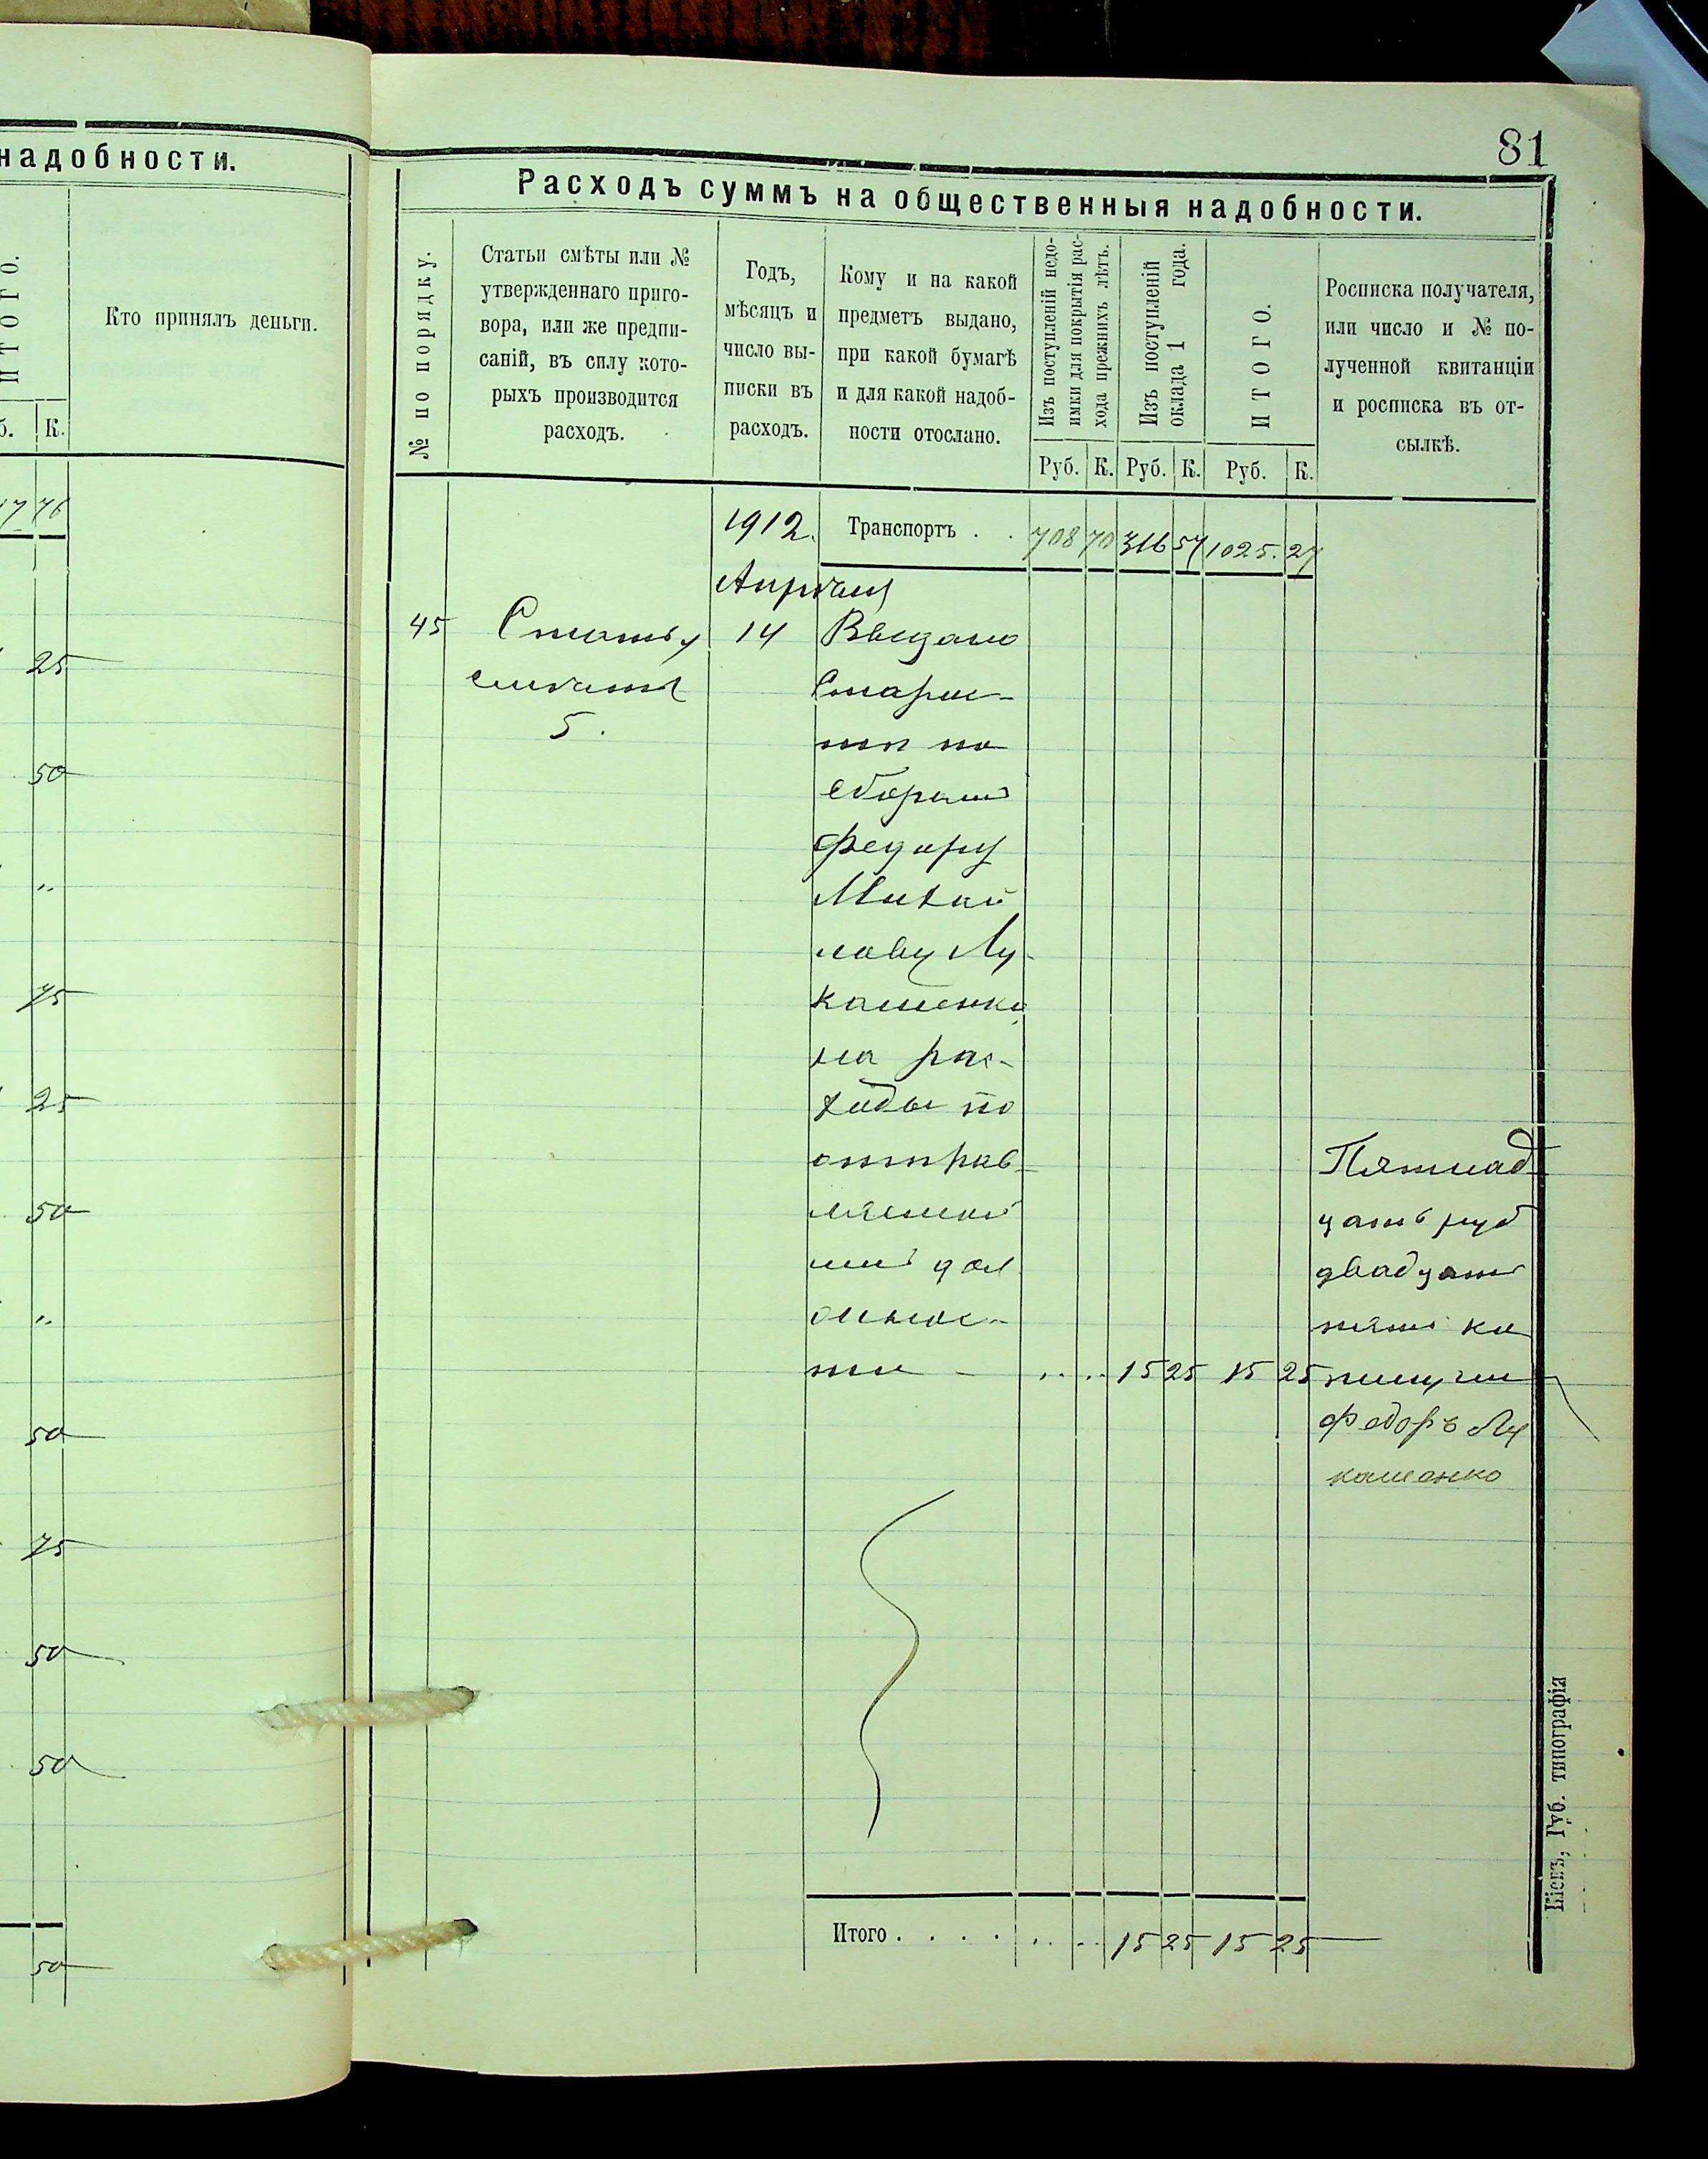 надобности.
ИТОГО.
Кто принялъ деньги.
К.
17 76
25
50
"
75
25
50
"
50
75
50
50
50
81
Расходъ суммъ на общественныя надобности.
№ по порядку.
Статьи смѣты или №
утвержденнаго приго-
вора, или же предпи-
саній, въ силу кото-
рыхъ производится
расходъ.
Годъ,
мѣсяцъ и
число вы-
писки въ
расходъ.
Кому и на какой
предметъ выдано,
при какой бумагѣ
и для какой надоб-
ности отослано.
Изъ поступленій недо-
имки для покрытія рас-
хода прежнихъ лѣтъ.
Изъ поступленій
оклада 1 года.
ИТОГО.
Росписка получателя,
или число и № по-
лученной квитанціи
и росписка въ от-
сылкѣ.
Руб. К. Руб. К. Руб. К.
1912. Транспортъ . . 708 70 316 57 1025. 27
Апрѣля
45 Статья 14 Выдано
смѣты Старос-
5. тѣ по
сборамъ
Федору
Михай
лову Лу-
кашенко
на рас-
ходы по
отправ-
дол
жнос-
ти - .. .. 15 25 15 25
Пятнад
цать руб
двадцать
пять ко
получил
Федоръ Лу
кашенко
Итого . . . . .. .. 15 25 15 25
Кіевъ, Губ. типографія